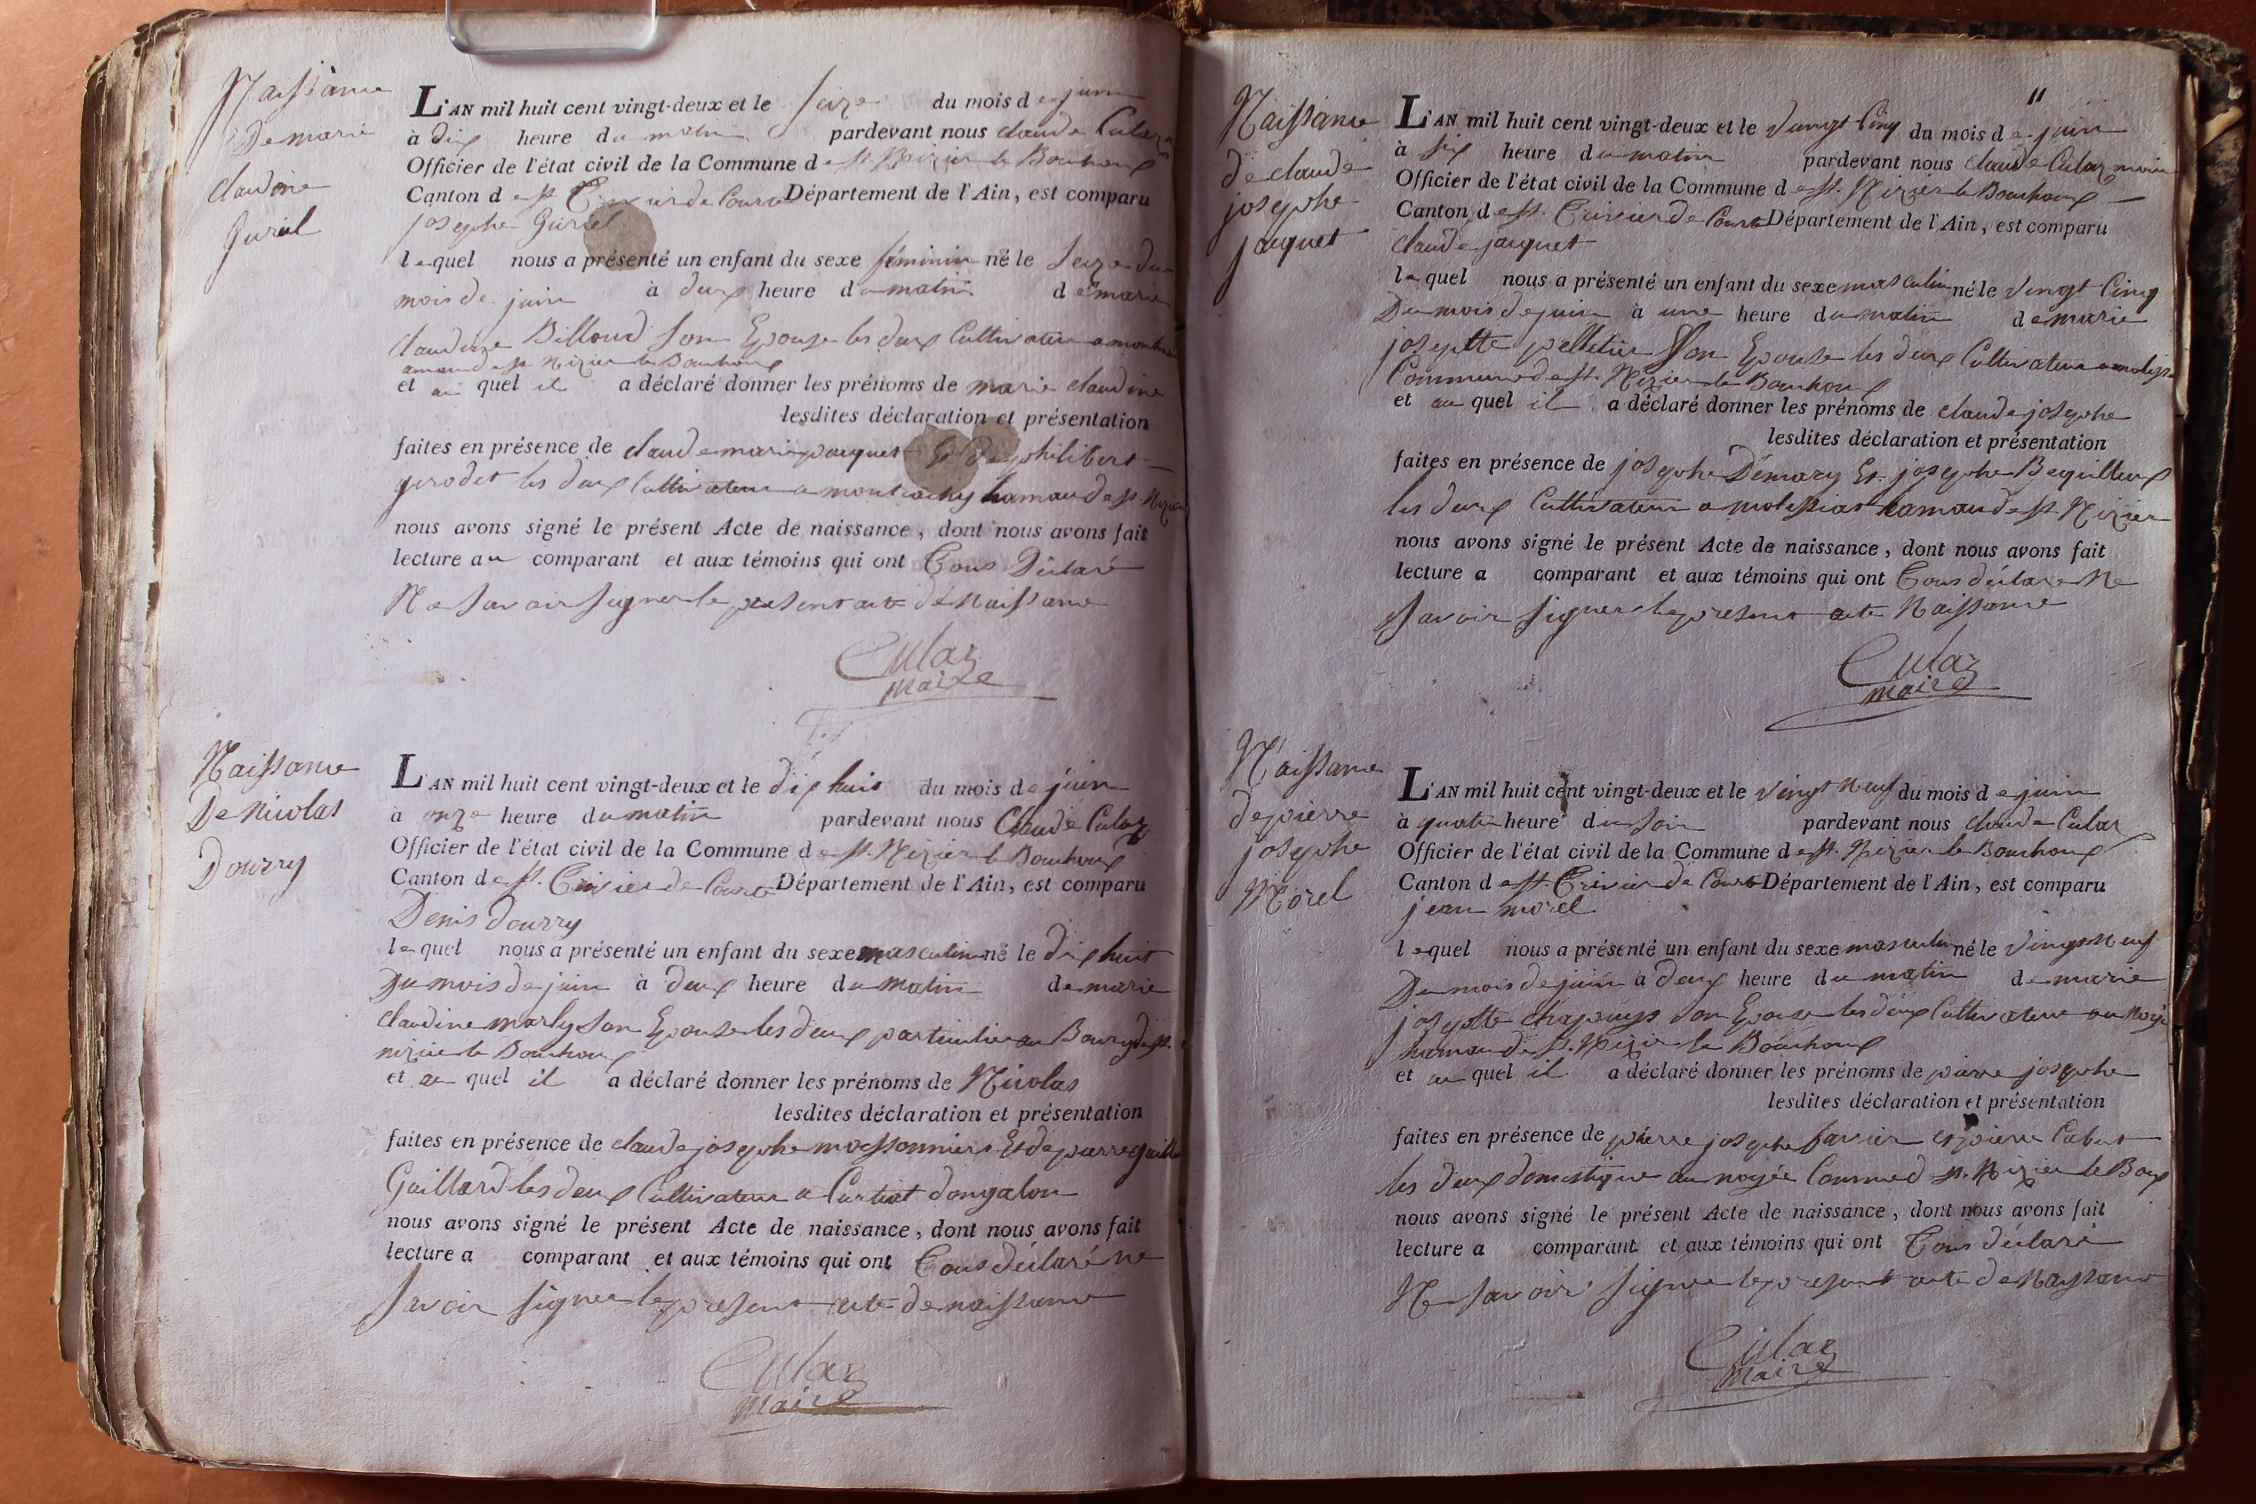 Naissance
De marie
claudine
Guril
L'AN mil huit cent vingt-deux et le seize du mois de juin
à dix heure du matin pardevant nous claude Culaz
Officier de l'état civil de la Commune de st. Nizier le Bouchoux
Canton de st Trivier de Courte Département de l'Ain, est comparu
josephe Guriel
lequel nous a présenté un enfant du sexe féminin né le seize du
mois de juin à deux heure du matin de marie
claudine Billoud son Epouse les deux Cultivateur a
amau de st Nizier le Bouchoux
et au quel il a déclaré donner les prénoms de marie claudine
lesdites déclaration et présentation
faites en présence de claude marie jacquet Et De philibert
gerodet les deux Cultivateur a hamau de st. Nizier
nous avons signé le présent Acte de naissance, dont nous avons fait
lecture au comparant et aux témoins qui ont Tous Déclaré
Ne savoir signer le present acte de Naissance
Culaz
maire
Naissance
De Nicolas
Dourry
L'AN mil huit cent vingt-deux et le dix huit du mois de juin
à onze heure du matin pardevant nous Claude Culaz
Officier de l'état civil de la Commune de st. Nizier le Bouchoux
Canton de st. Trivier de Courte Département de l'Ain, est comparu
Denis Dourry
lequel nous a présenté un enfant du sexe masculin né le dix huit
Du mois de juin à deux heure du matin de marie
claudine marly son Epouse les deux particulier au Bourg de st.
nizier le Bouchoux
et au quel il a déclaré donner les prénoms de Nicolas
lesdites déclaration et présentation
faites en présence de claude josephe moissonnier Et de pierre
Gaillard les deux Cultivateur a Curtiat dongalon
nous avons signé le présent Acte de naissance, dont nous avons fait
lecture a comparant et aux témoins qui ont Tous déclaré ne
savoir signer le present acte de naissance
Culaz
maire
11
Naissance
de claude
josephe
jacquet
L'AN mil huit cent vingt-deux et le vingt Cinq du mois de juin
à six heure du matin pardevant nous claude Culaz maire
Officier de l'état civil de la Commune de st. Nizier le Bouchoux
Canton de st. Trivier de Courte Département de l'Ain, est comparu
claude jacquet
lequel nous a présenté un enfant du sexe masculin né le vingt Cinq
Du mois de juin à une heure du matin de marie
josephte pelletier son Epouse les deux Cultivateur a
Commune de st. Nizier le Bouchoux
et au quel il a déclaré donner les prénoms de claude josephe
lesdites déclaration et présentation
faites en présence de josephe Démary Et josephe
les deux Cultivateur a molissiat hamau de st. Nizier
nous avons signé le présent Acte de naissance, dont nous avons fait
lecture a comparant et aux témoins qui ont Tous déclaré Ne
savoir signer le present acte Naissance
Culaz
maire
Naissance
de pierre
josephe
Morel
L'AN mil huit cent vingt-deux et le vingt Neuf du mois de juin
à quatre heure du soir pardevant nous claude Culaz
Officier de l'état civil de la Commune de st. Nizier le Bouchoux
Canton de st Trivier de Courte Département de l'Ain, est comparu
jean morel
lequel nous a présenté un enfant du sexe masculin né le vingt Neuf
Du mois de juin à deux heure du matin de marie
josephte chapuys son Epouse les deux Cultivateur au
hamau de st. Nizier le Bouchoux
et au quel il a déclaré donner les prénoms de pierre josephe
lesdites déclaration et présentation
faites en présence de pierre josephe favier et pierre Cabut
les deux domestique au noyée Commed st. Nizier le Boux
nous avons signé le présent Acte de naissance, dont nous avons fait
lecture a comparant et aux témoins qui ont Tous déclaré
Ne savoir signer le present acte de Naissance
Culaz
maire